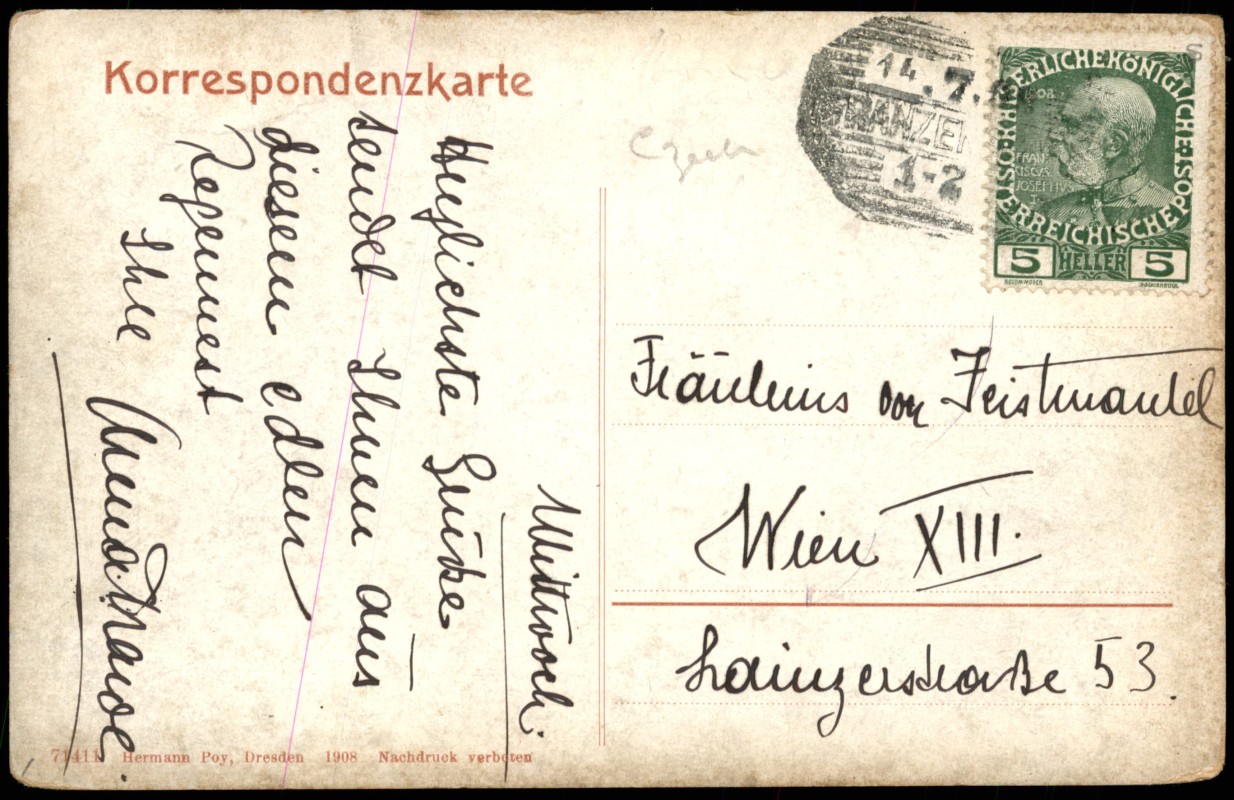 Korrespondenzkarte
14.7.
FRANZE
1-2
KAISERLICHEKÖNIGLICHE
ÖSTERREICHISCHE POST
FRAN
CISCVS
JOSEPHVS
5 HELLER 5
Czech
Mittwoch.
Herzlichste Grüße
sendet Ihnen aus
diesem edlen
Regennest
Ihre
Fräuleins von Feistmantel
Wien XIII.
Lainzerstraße 53.
71411 Hermann Poy, Dresden 1908 Nachdruck verboten